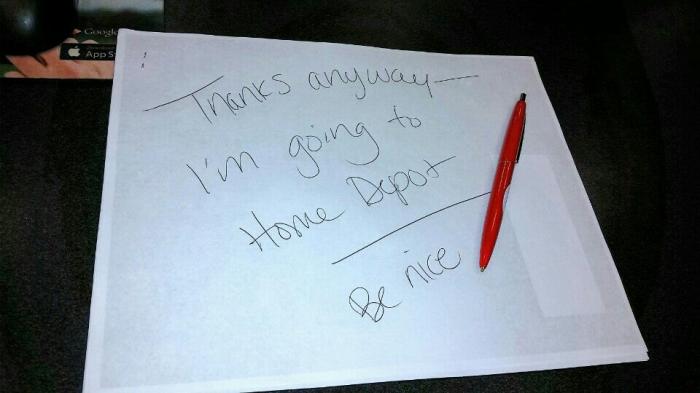 Google
App St
Thanks anyway—
I'm going to
Home Depot
Be nice